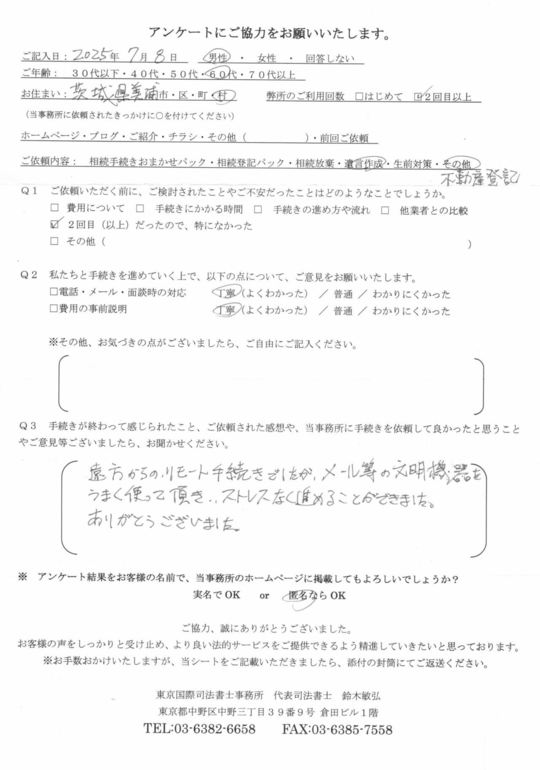 アンケートにご協力をお願いいたします。
ご記入日：2025年 7月 8日　男性 ・ 女性 ・ 回答しない
ご年齢：３０代以下・４０代・５０代・６０代・７０代以上
お住まい：茨城県美浦市・区・町・村　弊所のご利用回数 □はじめて ☑２回目以上
（当事務所に依頼されたきっかけに○を付けてください）
ホームページ・ブログ・ご紹介・チラシ・その他（　　　　　）・前回ご依頼
ご依頼内容：相続手続きおまかせパック・相続登記パック・相続放棄・遺言作成・生前対策・その他
不動産登記
Ｑ１　ご依頼いただく前に、ご検討されたことやご不安だったことはどのようなことでしょうか。
□ 費用について □ 手続きにかかる時間 □ 手続きの進め方や流れ □ 他業者との比較
☑ ２回目（以上）だったので、特になかった
□ その他（　　　　　）
Ｑ２　私たちと手続きを進めていく上で、以下の点について、ご意見をお願いいたします。
□電話・メール・面談時の対応　丁寧（よくわかった）／ 普通 ／ わかりにくかった
□費用の事前説明　丁寧（よくわかった）／ 普通 ／ わかりにくかった
※その他、お気づきの点がございましたら、ご自由にご記入ください。
Ｑ３　手続きが終わって感じられたこと、ご依頼された感想や、当事務所に手続きを依頼して良かったと思うこと
やご意見等ございましたら、お聞かせください。
遠方からのリモート手続きでしたが、メール等の文明機器を
うまく使って頂き、ストレスなく進めることができました。
ありがとうございました。
※ アンケート結果をお客様の名前で、当事務所のホームページに掲載してもよろしいでしょうか？
実名でOK　or　匿名ならOK
ご協力、誠にありがとうございました。
お客様の声をしっかりと受け止め、より良い法的サービスをご提供できるよう精進していきたいと思っております。
※お手数おかけいたしますが、当シートをご記載いただきましたら、添付の封筒にてご返送ください。
東京国際司法書士事務所　代表司法書士　鈴木敏弘
東京都中野区中野三丁目３９番９号 倉田ビル１階
TEL:03-6382-6658　FAX:03-6385-7558